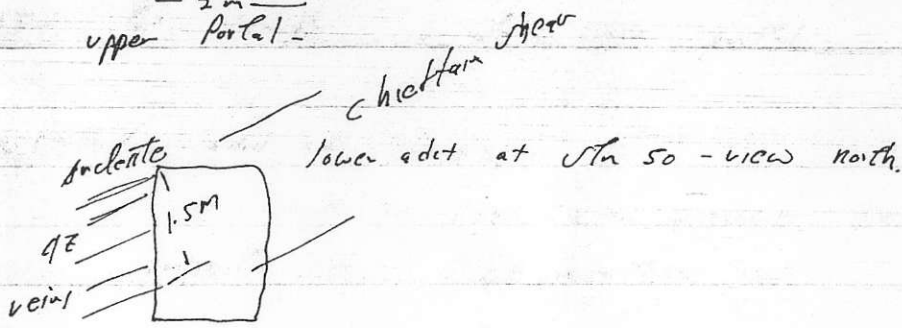 2 m
upper Portal -
Chieftain shear
andesite
lower adit at stn 50 - view north.
1.5 M
qz
veins